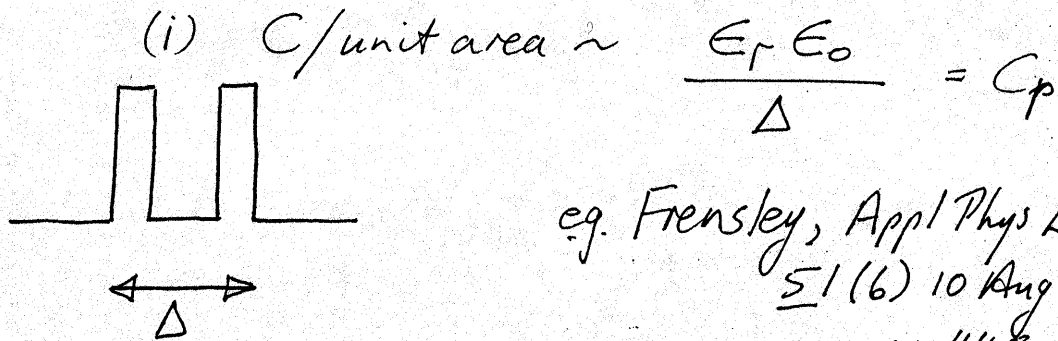 (i) C/unit area ~ ϵr ϵ0 / Δ = Cp
e.g. Frensley, Appl Phys L
51 (6) 10 Aug
Δ